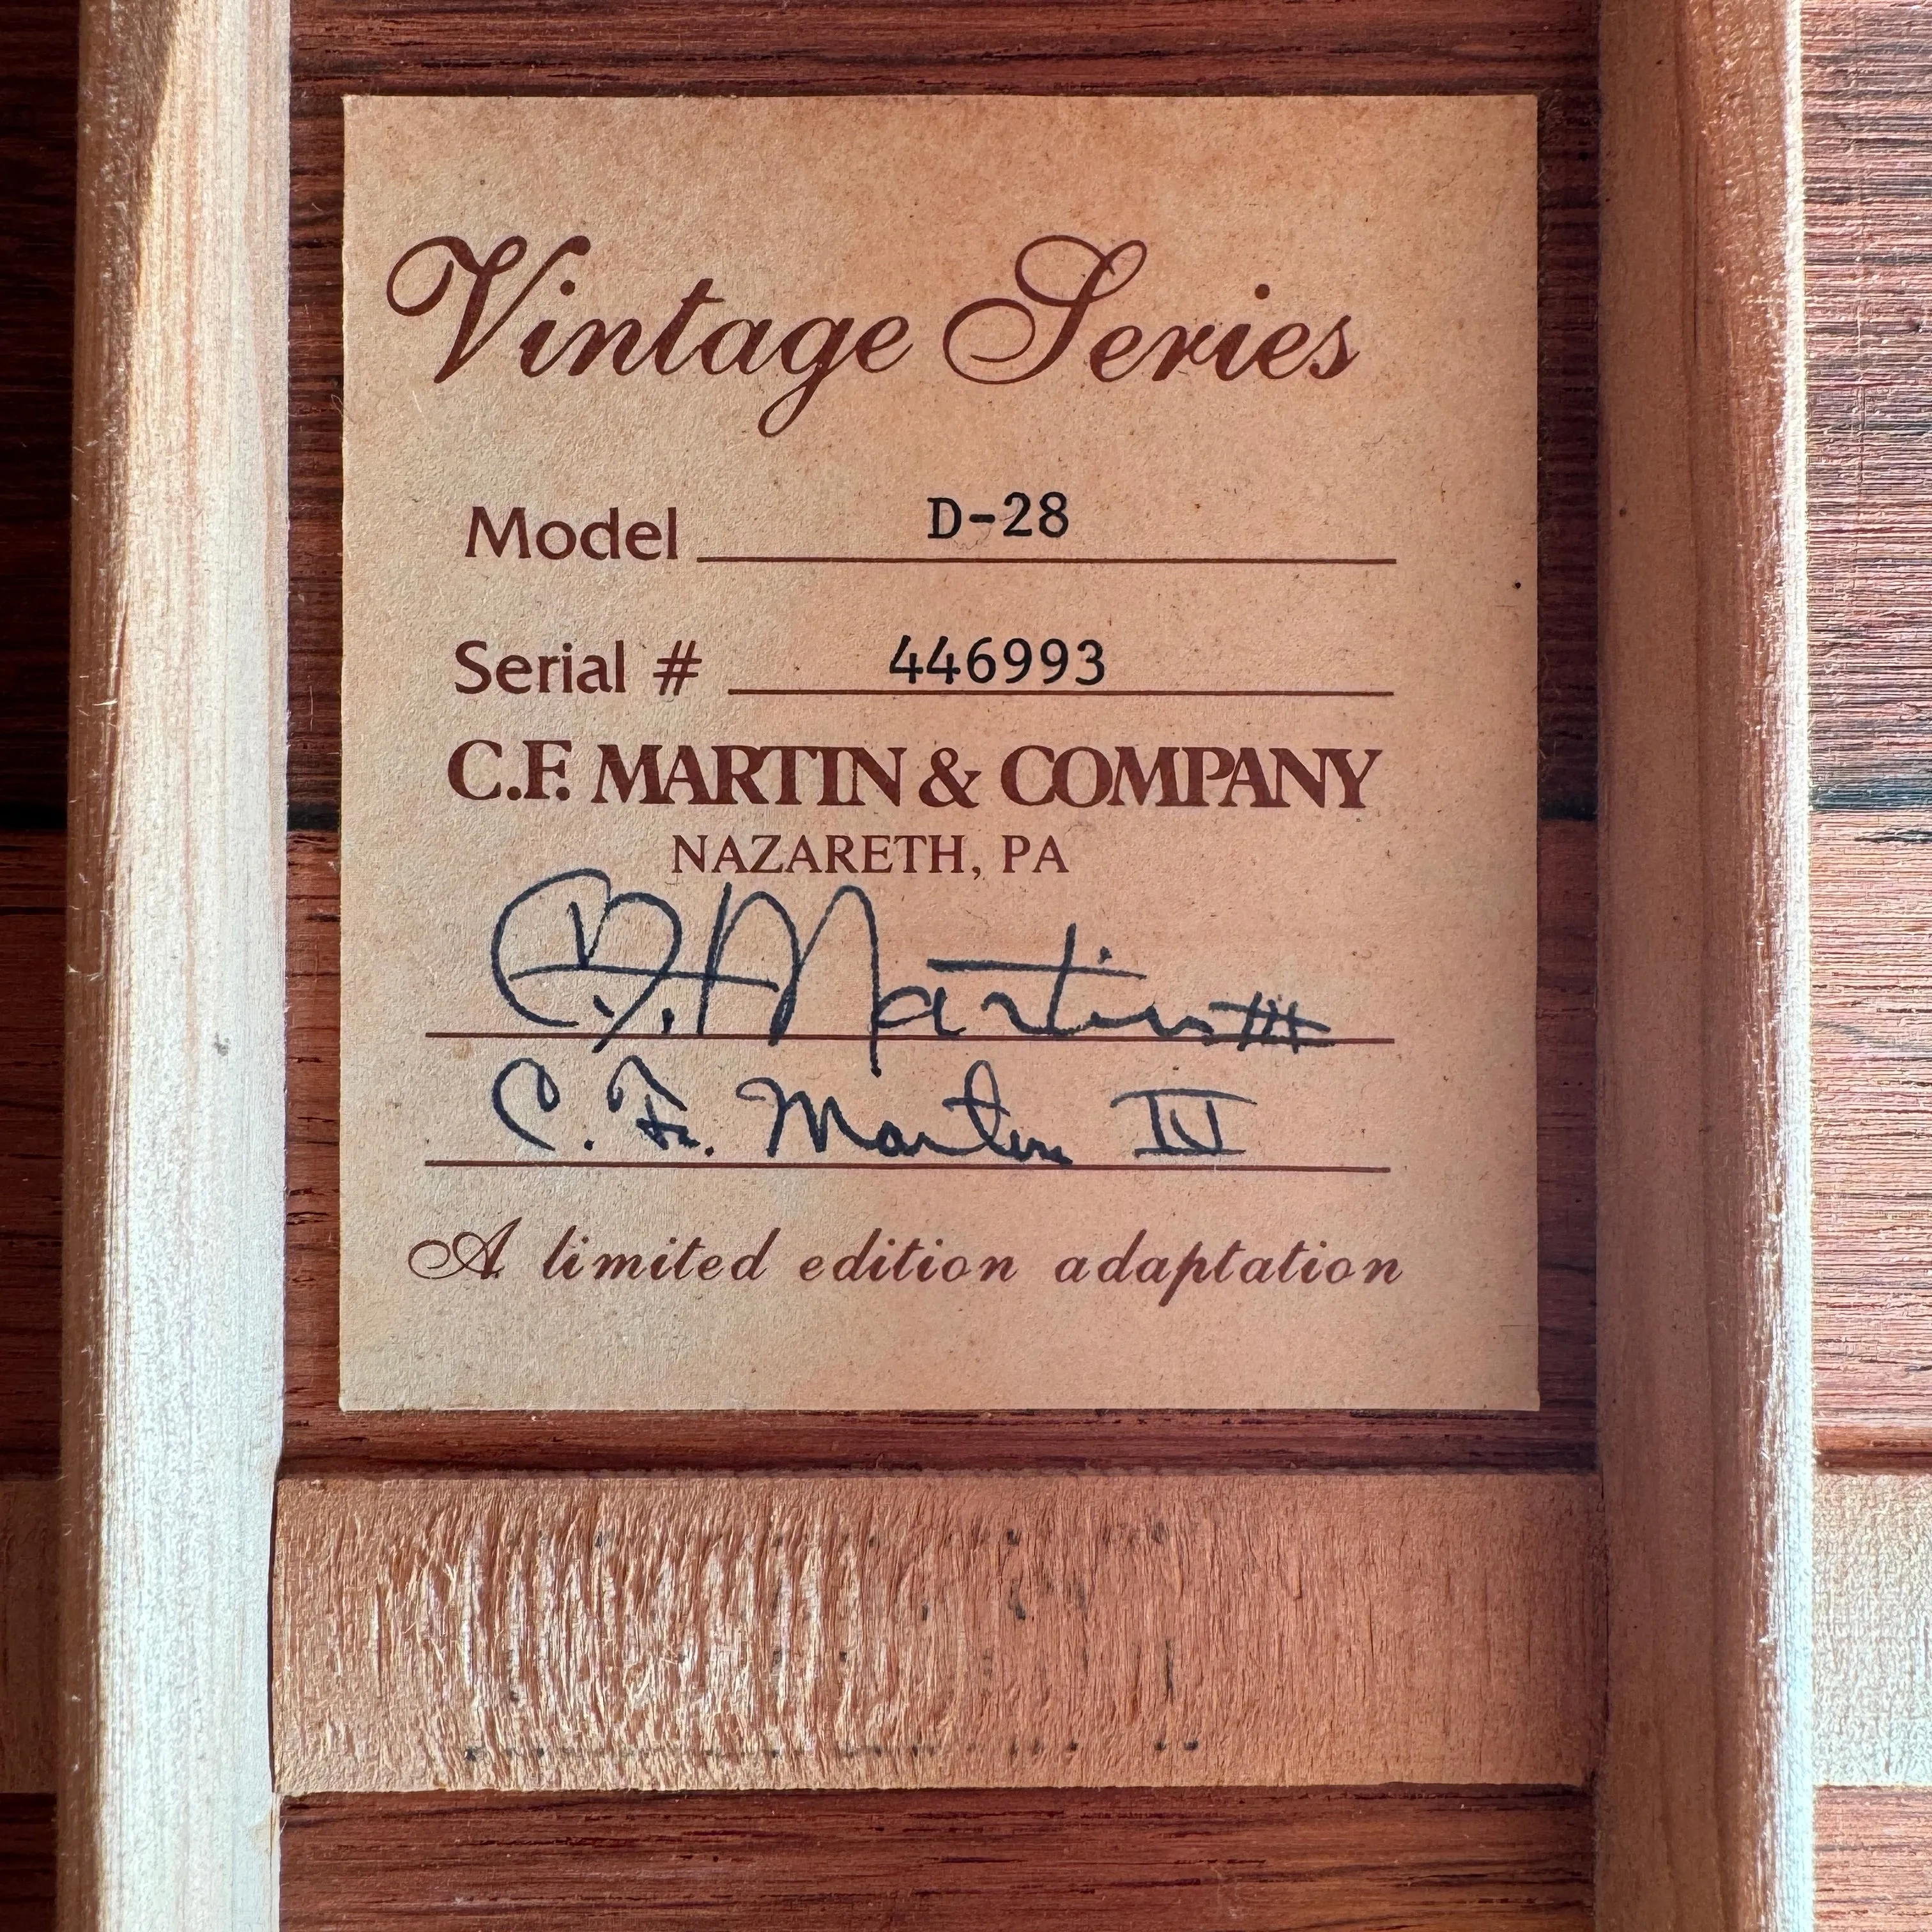 Vintage Series
Model D-28
Serial # 446993
C.F. MARTIN & COMPANY
NAZARETH, PA
Martin III
C. Fr. Martin IV
A limited edition adaptation